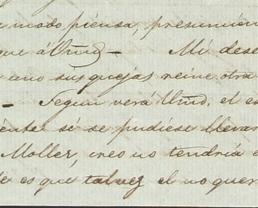 modo piensa, presumien
que á Vmd — Mi dese
uno sus quejas reine otra
— Segun verá Vmd. el es
ente sé se pudiese llevar
Moller, creo no tendría
es que talvez el no quer